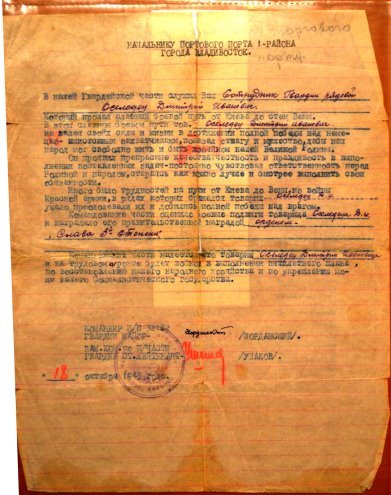 НАЧАЛЬНИКУ ПОРТОВОГО ПОРТА 1-РАЙОНА
ГОРОДА ВЛАДИВОСТОК.
В нашей Гвардейской части служил Ваш Сотрудник Гвардии рядовой
Оселедец Дмитрий Иванович.
Который прошел славный боевой путь от Киева до стен Вены.
В этом славном боевом пути тов. Оселедец Дмитрий Иванович
не щадил своей силы и жизни в достижении полной победы над немец-
ко- захватчиками, показал отвагу и мужество, дабы наш
народ мог свободно жить и быть хозяином нашей Великой Родины.
Он проявил прекрасные качества честность и правдивость в выпол-
нении поставленных задач-постоянно чувствовал ответственность перед
Родиной и народом, стараясь как можно лучше и быстрее выполнить свои
обязанности.
Много было трудностей на пути от Киева до Вены, но войны
Красной армии, в рядах которых сражался товарищ Оселедец Д.И.
умело преодолевали их и добились полной победы над врагом.
Командование части оценило боевые подвиги товарища Оселедец Д.И.
и наградило его правительственной наградой орденом
"Слава 3й степени"
Командование части надеется что товарищ Оселедец Дмитрий Иванович
и на трудовом фронте будет в выполнении пятилетнего плана,
по восстановлению нашего народного хозяйства и по укреплению мо-
щи нашего Социалистического Государства.
КОМАНДИР П/П
ГВАРДИИ МАЙОР- /ИОРДАНСКИЙ/.
ЗАМ.КОМ.ПО П/ЧАСТИ
ГВАРДИИ СТ.ЛЕЙТЕНАНТ- /УШАКОВ/.
"18" октября 1945 года.